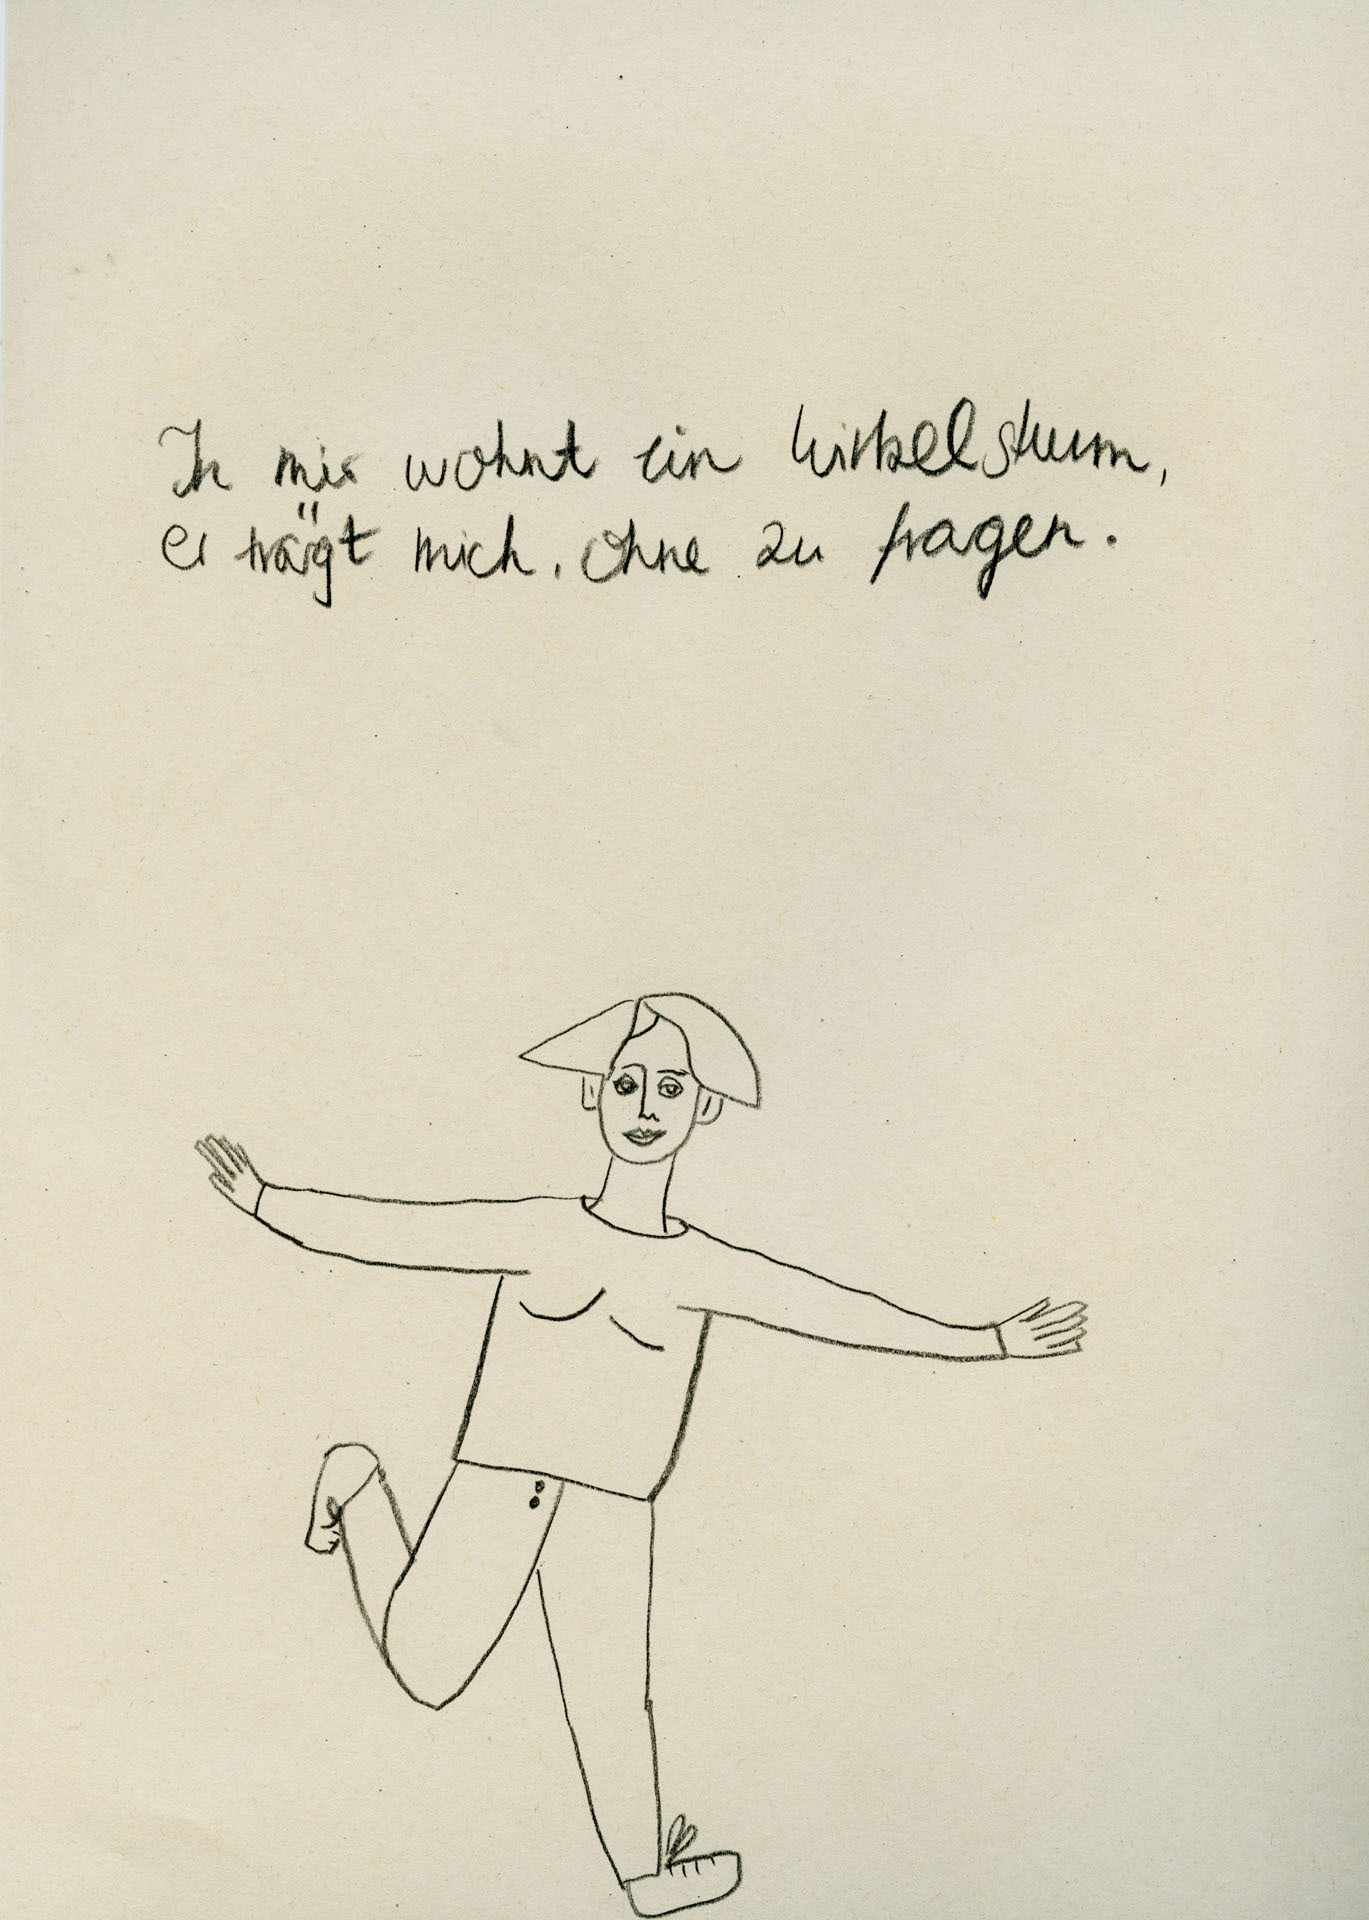 In mir wohnt ein Wirbelsturm,
er trägt mich, ohne zu fragen.